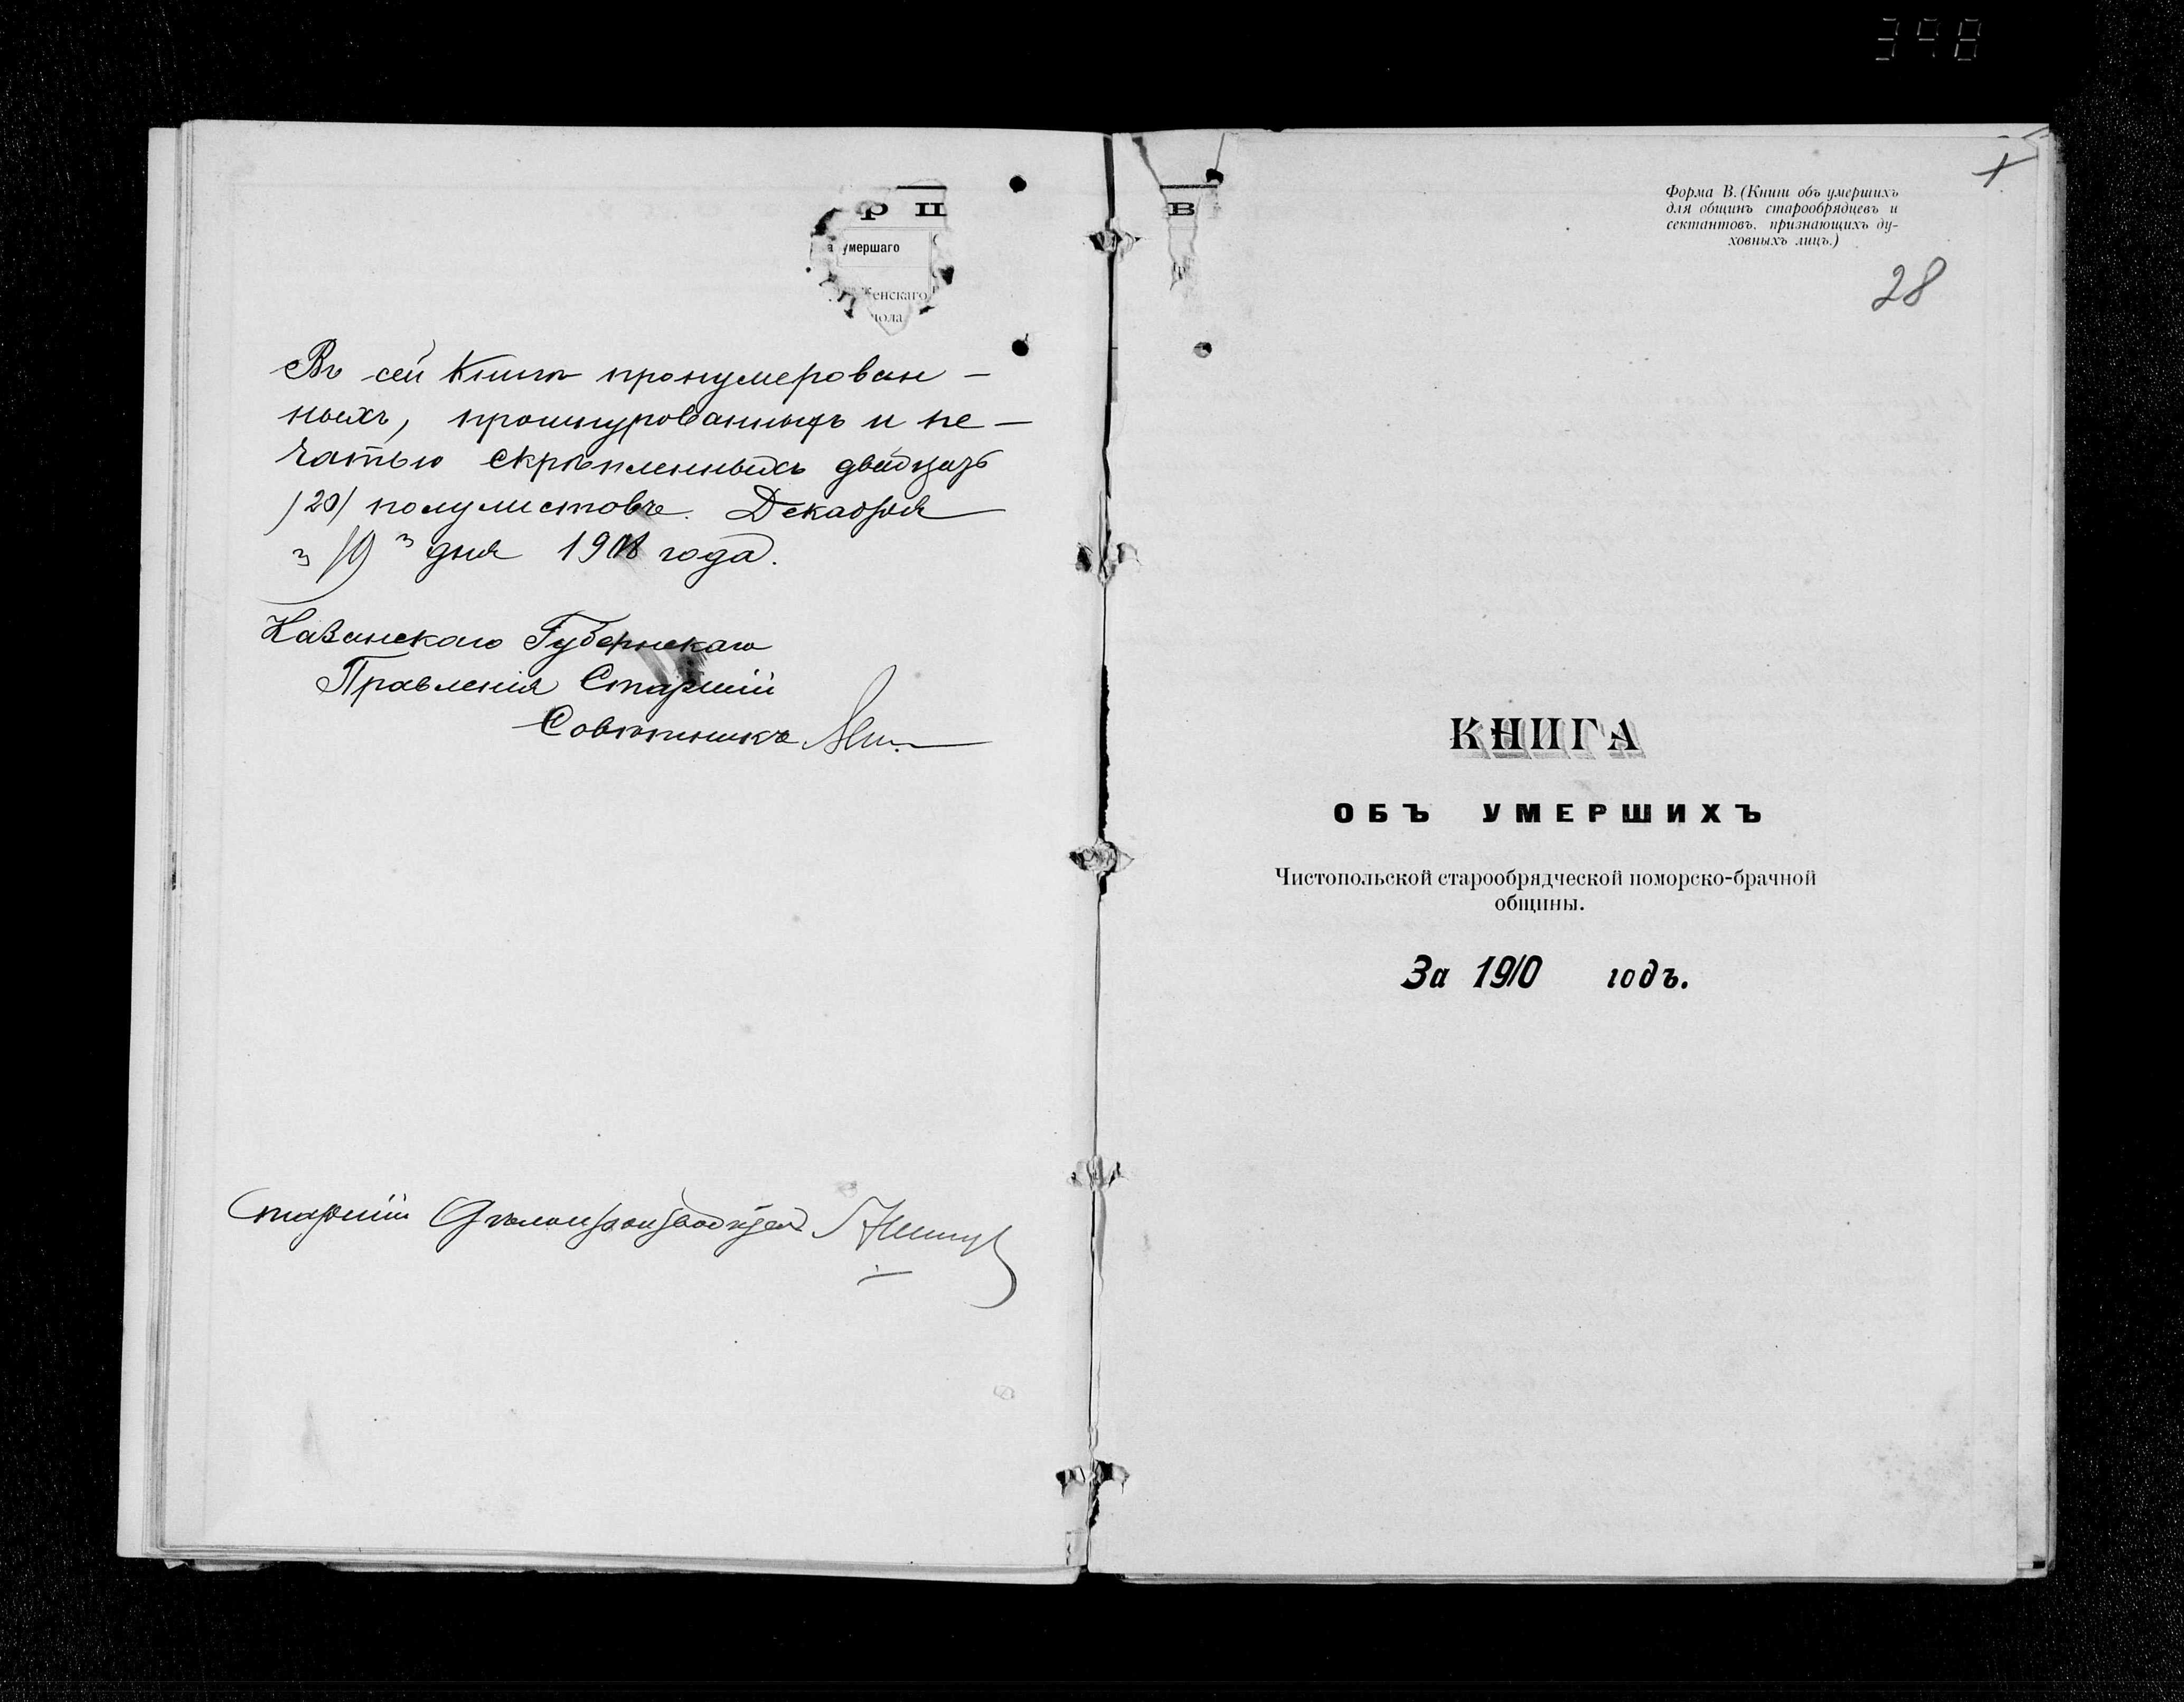 398
Р П
а умершаго
енскаго
пола
Въ сей книгѣ пронумерован-
ныхъ, прошнурованныхъ и пе-
чатью скрѣпленныхъ двадцать
/20/ полулистовъ. Декабря
"19" дня 1908 года.
Казанскаго Губернскаго
Правленія Старшій
Совѣтникъ
Старшій Дѣлопроизводитель
В
Форма В. (Книги объ умершихъ
для общинъ старообрядцевъ и
сектантовъ, признающихъ ду-
ховныхъ лицъ.)
28
КНИГА
ОБЪ УМЕРШИХЪ
Чистопольской старообрядческой поморско-брачной
общины.
За 1910 годъ.